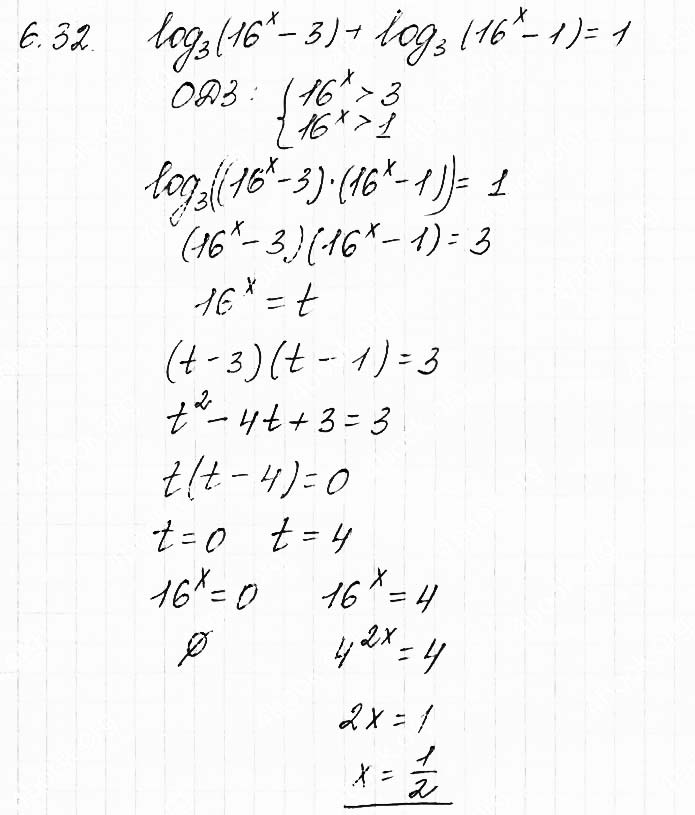 6.32. log₃(16ˣ - 3) + log₃(16ˣ - 1) = 1
ОДЗ: { 16ˣ > 3
16ˣ > 1
log₃((16ˣ - 3)·(16ˣ - 1)) = 1
(16ˣ - 3)(16ˣ - 1) = 3
16ˣ = t
(t - 3)(t - 1) = 3
t² - 4t + 3 = 3
t(t - 4) = 0
t = 0 t = 4
16ˣ = 0 16ˣ = 4
∅ 4²ˣ = 4
2x = 1
x = 1/2